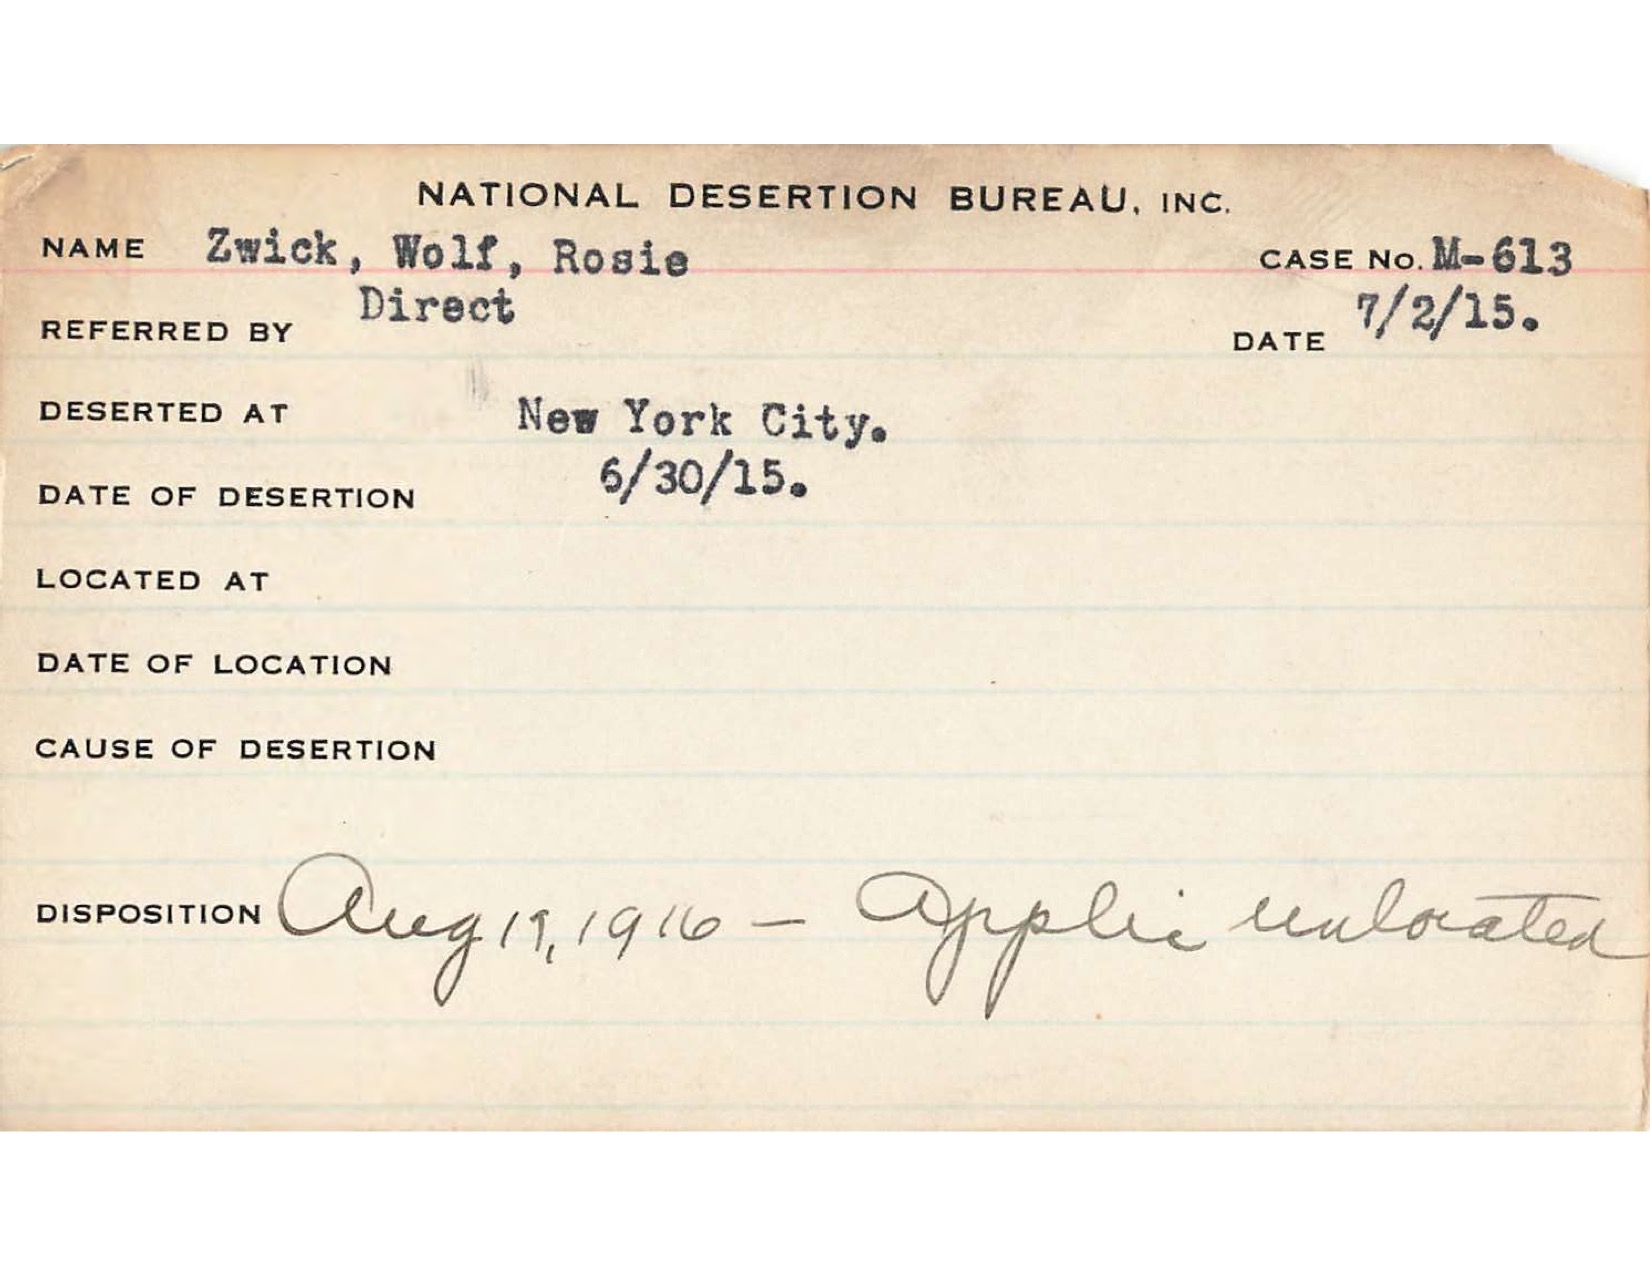 NATIONAL DESERTION BUREAU, INC.
NAME Zwick, Wolf, Rosie CASE No. M-613
REFERRED BY Direct DATE 7/2/15.
DESERTED AT New York City.
DATE OF DESERTION 6/30/15.
LOCATED AT
DATE OF LOCATION
CAUSE OF DESERTION
DISPOSITION Aug 19, 1916 - Applic unlocated